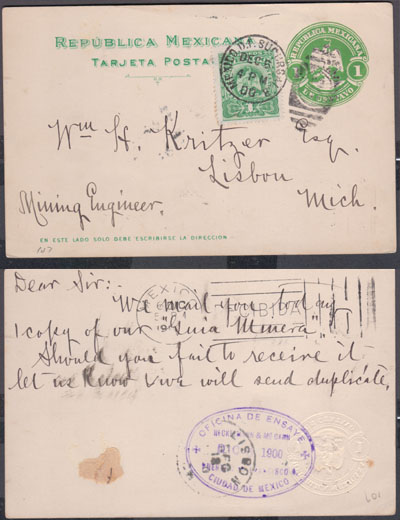 REPUBLICA MEXICANA
TARJETA POSTAL
MEXICO D.F. SUC.
DEC 5
4 PM
1
REPUBLICA MEXICANA
1 1
UN CENTAVO
Wm H. Kritzer Esq.
Lisbon
Mich.
Mining Engineer.
EN ESTE LADO SOLO DEBE ESCRIBIRSE LA DIRECCION
Dear Sir:-
MEXICO
We mail you today
1 copy of our "Guia Minera",
Should you fail to receive it
let us know & we will send duplicate,
OFICINA DE ENSAYE
DIC 1900
CIUDAD DE MEXICO
LISBON